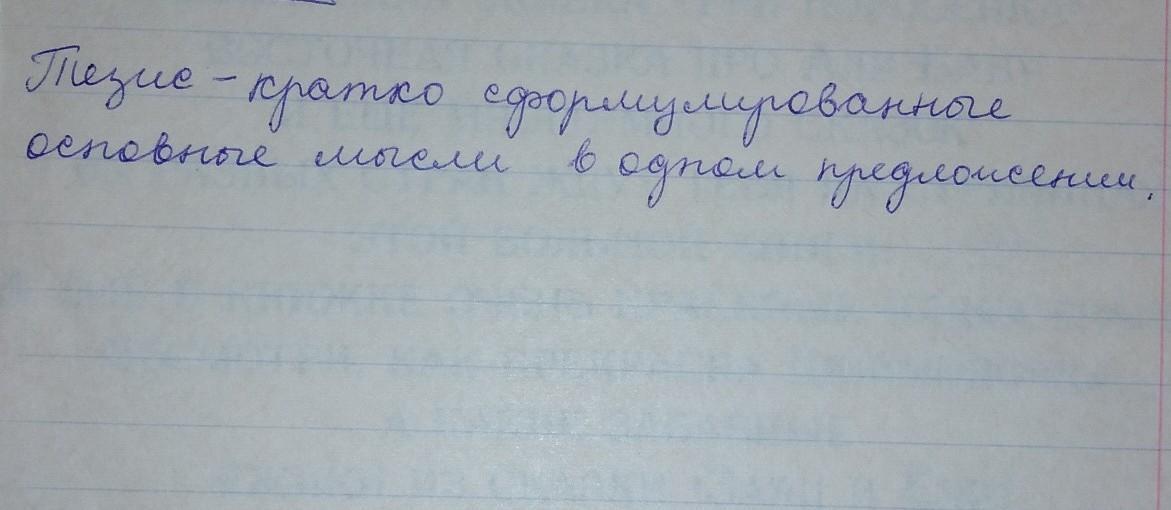 Тезис - кратко сформулированные
основные мысли в одном предложении.